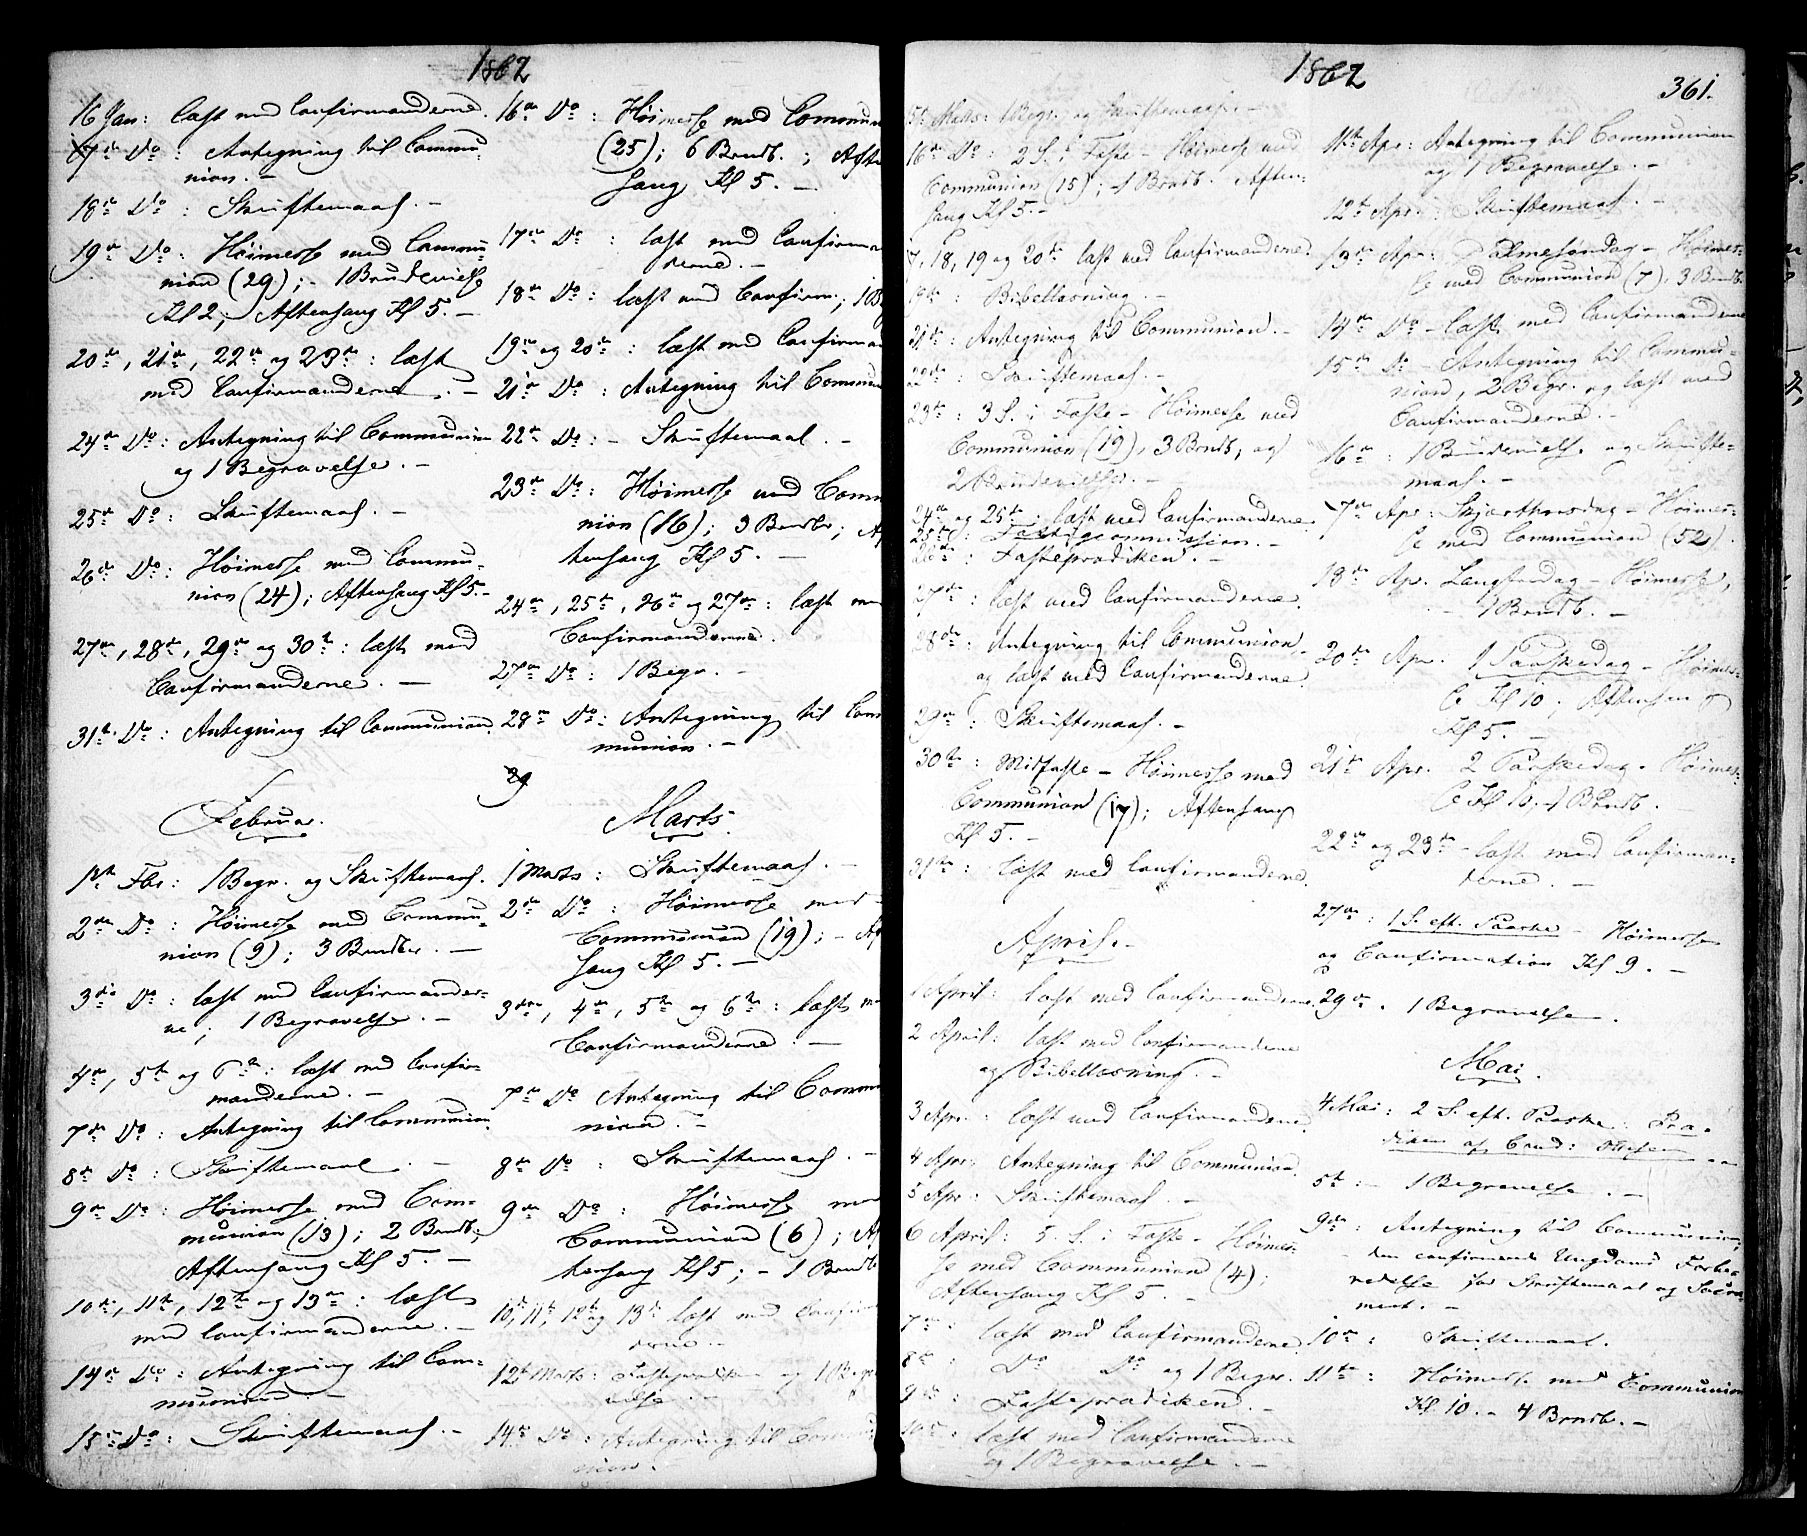 1862
16 Jan: læst med Confirmanderne.
17de Do: Antegning til Commu-
nion. -
18de Do: Skriftemaal. -
19de Do: Høimesse med Commu-
nion (29); - 1 Brudevielse
Kl 2; Aftensang Kl 5. -
20de, 21de, 22de og 23de: læst
med Confirmanderne. -
24de Do: Antegning til Communion
og 1 Begravelse. -
25de Do: Skriftemaal. -
26de Do: Høimesse med Commu-
nion (24); Aftensang Kl 5. -
27de, 28de, 29de og 30te: læst med
Confirmanderne. -
31te Do: Antegning til Communion.
Februar.
1ste Fbr: 1 Begr. og Skriftemaal.
2den Do: Høimesse med Commu-
nion (9); 3 Brndbr. -
3die Do: læst med Confirmander-
ne; 1 Begravelse. -
4de, 5te og 6te: læst med Confir-
manderne. -
7de Do: Antegning til Communion.
8de Do: Skriftemaal. -
9de Do: Høimesse med Com-
munion (13); 2 Brndb;
Aftensang Kl 5. -
10de, 11te, 12te og 13de: læst
med Confirmanderne. -
14de Do: Antegning til Com-
munion -
15de Do: Skriftemaal. -
16de Do: Høimesse med Commun
(25); 6 Brndb.; Aft
sang Kl 5. -
17de Do: læst med Confirma
derne. -
18de Do: læst med Confirm.; 1 B
19de og 20de: læst med Confirman
21de Do: Antegning til Commun
22de Do: - Skriftemaal. -
23de Do: Høimesse med Comm
nion (16); 3 Brndbr; Af
tensang Kl 5. -
24de, 25de, 26de og 27de: læst me
Confirmanderne.
27de Do: 1 Begr. -
28de Do: Antegning til Com
munion. -
29
Marts.
1 Marts: Skriftemaal. -
2de Do: Høimesse med
Communion (19); - Af
sang Kl 5. -
3die, 4de, 5te og 6te: læst m
Confirmanderne. -
7de Do Antegning til Comm
nion. -
8de Do: Skriftemaal. -
9de Do: Høimesse me
Communion (6); Af
tensang Kl 5; - 1 Brndb
10de, 11te, 12te og 13de læst med Confirm
derne. -
12te Marts: Fasteprædiken og 1 Begra
velse. -
14de Do: Antegning til Comm
nion. -
1862
361.
15de Marts: 1 Begr. og Skriftemaal. -
16de Do: 2 S. i Faste - Høimesse med
Communion (15); - 1 Brndb. Aften-
sang Kl 5. -
17, 18, 19 og 20de læst med Confirmanderne.
19de: Bibellæsning. -
21de: Antegning til Communion. -
22de: Skriftemaal. -
23de: 3 S. i Faste - Høimesse med
Communion (19), 3 Brndb, og
2 Brudevielser. -
24de og 25de: læst med Confirmanderne
25de: -
26de: Fasteprædiken. -
27de: læst med Confirmanderne.
28de: Antegning til Communion
og læst med Confirmanderne.
29de: Skriftemaal. -
30te: Midfaste - Høimesse med
Communion (17); Aftensang
Kl 5. -
31te: læst med Confirmanderne.
April. -
1 April: læst med Confirmanderne.
2 April: læst med Confirmanderne
og Bibellæsning. -
3 Apr.: læst med Confirmanderne.
4 Apr: Antegning til Communion.
5 Apr: Skriftemaal. -
6 April: 5. S. i Faste - Høimes-
se med Communion (4);
Aftensang Kl 5. -
7de: læst med Confirmanderne.
8de: Do Do og 1 Begr.
9de: Fasteprædiken. -
10de: læst med Confirmanderne
og 1 Begravelse. -
11te Apr: Antegning til Communion
og 1 Begravelse. -
12te Apr.: Skriftemaal. -
13de Apr: Palmesøndag - Høimes-
se med Communion (7). 3 Brndb.
14de Do - læst med Confirmanderne
15de Do - Antegning til Commu-
nion, 2 Begr. og læst med
Confirmanderne. -
16de: 1 Brudevielse og Skrifte-
maal. -
17de Apr: Skjærthorsdag - Høimes-
se med Communion (52).
18de Ap. Langfredag - Høimesse,
1 Brndb. -
20de Apr. 1 Paaskedag - Høimes-
se Kl 10; Aftensang
Kl 5. -
21de Apr. 2 Paaskedag - Høimes-
se Kl 10; - 1 Brndb.
22de og 23de - læst med Confirman-
derne. -
27de: 1 S. eft. Paaske - Høimesse
og Confirmation Kl 9. -
29de. 1 Begravelse.
Mai.
4 Mai: 2 S. eft. Paaske: Præ-
diken af Cand:
5te: - 1 Begravelse. -
9de: Antegning til Communion,
den confirmerede Ungdoms Forbe-
redelse for Skriftemaal og Sacra-
ment. -
10de: Skriftemaal.
11te: Høimesse med Communion
Kl. 10. - 4 Brndb. -